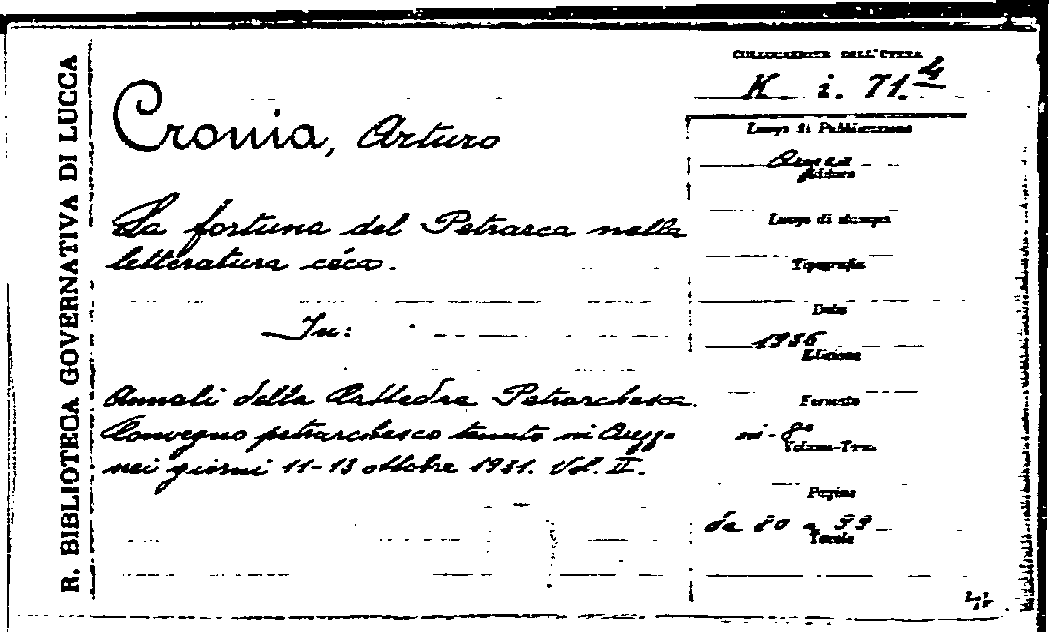 R. BIBLIOTECA GOVERNATIVA DI LUCCA
COLLOCAZIONE DELL'OPERA
K. i. 71.4
Cronia, Arturo
La fortuna del Petrarca nella
letteratura céca.
In:
Annali della Cattedra Petrarchesca.
Convegno petrarchesco tenuto in Arezzo
nei giorni 11-13 ottobre 1931. Vol. II.
Luogo di Pubblicazione
Editore
Luogo di stampa
Tipografia
Data
1936
Edizione
Formato
in-8°
Volume-Tomo
Pagine
da 80 a 99
Tavole